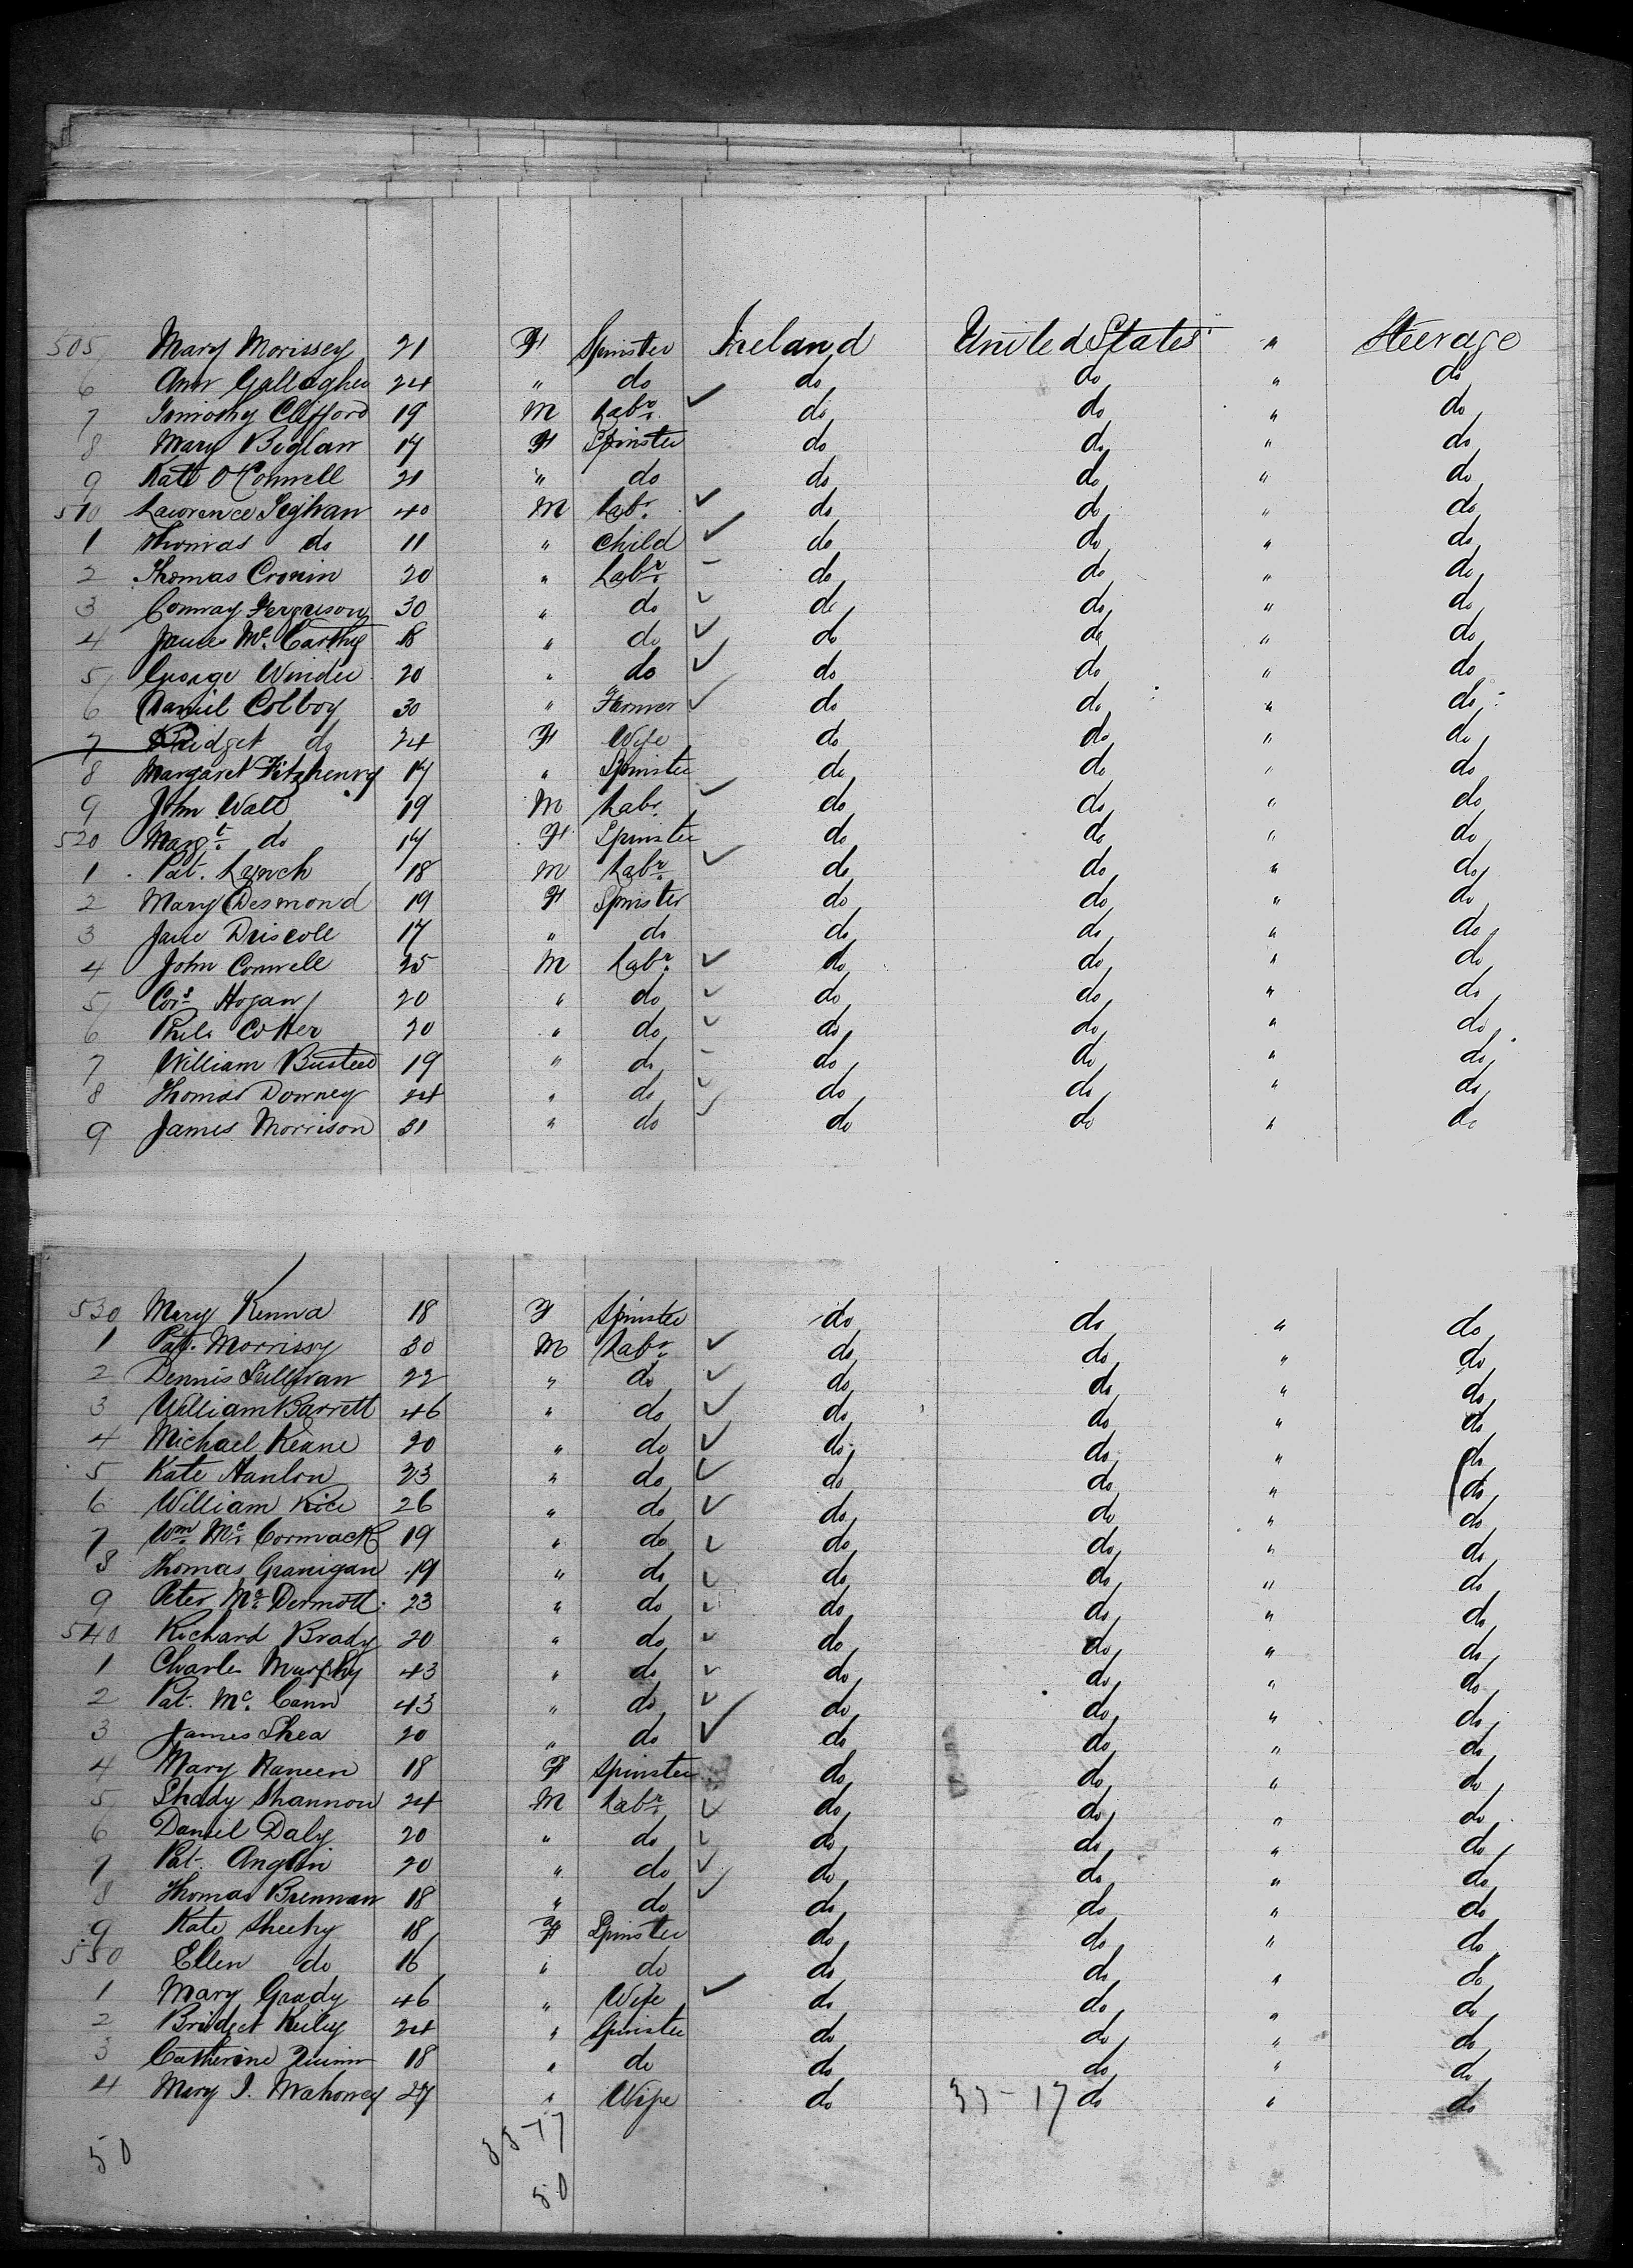 505 Mary Morissey 21 F Spinster Ireland United States " Steerage
6 Ann Gallagher 24 " do do do " do
7 Timothy Clifford 19 M Labr. do do " do
8 Mary Boglan 17 F Spinster do do " do
9 Kate O'Connell 21 " do do do " do
510 Lawrence 40 M Labr. do do " do
1 Thomas do 11 " Child do do " do
2 Thomas Cronin 20 " Labr. do do " do
3 Conway Ferguson 30 " do do do " do
4 James Mc. Carthy 18 " do do do " do
5 George Winder 20 " do do do " do
6 Daniel Colboy 30 " Farmer do do " do
7 Bridget do 24 F Wife do do " do
8 Margaret Fitzhenry 17 " Spinster do do " do
9 John Wall 19 M Labr. do do " do
520 Margt. do 17 F Spinster do do " do
1 Pat. Lynch 18 M Labr. do do " do
2 Mary Desmond 19 F Spinster do do " do
3 Jane Driscoll 17 " do do do " do
4 John Connell 25 M Labr. do do " do
5 Cors. Hogan 20 " do do do " do
6 Phil. Cotter 20 " do do do " do
7 William Busteed 19 " do do do " do
8 Thomas Downey 24 " do do do " do
9 James Morrison 31 " do do do " do
530 Mary Kenna 18 F Spinster do do " do
1 Pat. Morrissy 30 M Labr. do do " do
2 Dennis Sullivan 22 " do do do " do
3 William Barrett 46 " do do do " do
4 Michael Keane 20 " do do do " do
5 Kate Hanlon 23 " do do do " do
6 William Rice 26 " do do do " do
7 Wm. Mc. Cormack 19 " do do do " do
8 Thomas Granigan 19 " do do do " do
9 Peter Mc. Dermott 23 " do do do " do
540 Richard Brady 20 " do do do " do
1 Charles Murphy 43 " do do do " do
2 Pat. Mc. Cann 43 " do do do " do
3 James Shea 20 " do do do " do
4 Mary Haneen 18 F Spinster do do " do
5 Thady Shannon 24 M Labr. do do " do
6 Daniel Daly 20 " do do do " do
7 Pat. Anglin 20 " do do do " do
8 Thomas Brennan 18 " do do do " do
9 Kate Sheehy 18 F Spinster do do " do
550 Ellen do 16 " do do do " do
1 Mary Grady 46 " Wife do do " do
2 Bridget Keiley 24 " Spinster do do " do
3 Catherine Quinn 18 " do do do " do
4 Mary J. Mahoney 27 " Wife do 33-17 do " do
50 33-17
50